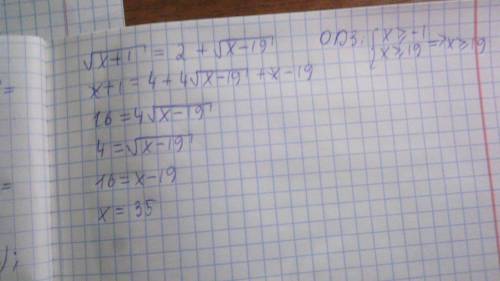 √x+1 = 2 + √x-19
ОДЗ: { x ≥ -1
x ≥ 19 => x ≥ 19
x+1 = 4 + 4√x-19 + x-19
16 = 4√x-19
4 = √x-19
16 = x-19
x = 35
=
=
);